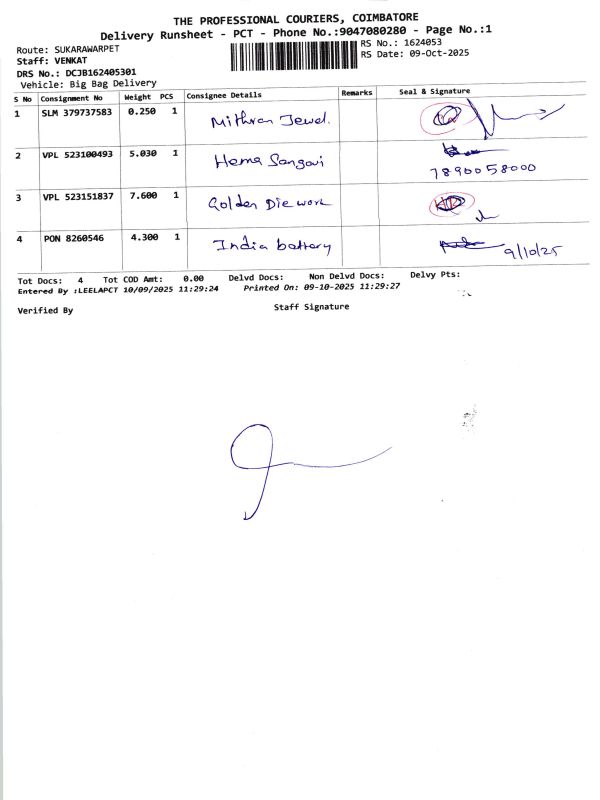 THE PROFESSIONAL COURIERS, COIMBATORE
Delivery Runsheet - PCT - Phone No.:9047080280 - Page No.:1
Route: SUKARAWARPET
RS No.: 1624053
Staff: VENKAT
RS Date: 09-Oct-2025
DRS No.: DCJB162405301
Vehicle: Big Bag Delivery
S No Consignment No Weight PCS Consignee Details Remarks Seal & Signature
1 SLM 379737583 0.250 1 Mithran Jewel.
2 VPL 523100493 5.030 1 Hema Sangavi
7890058000
3 VPL 523151837 7.600 1 Golden Die work
4 PON 8260546 4.300 1 India battery 9/10/25
Tot Docs: 4 Tot COD Amt: 0.00 Delvd Docs: Non Delvd Docs: Delvy Pts:
Entered By :LEELAPCT 10/09/2025 11:29:24 Printed On: 09-10-2025 11:29:27
Verified By Staff Signature